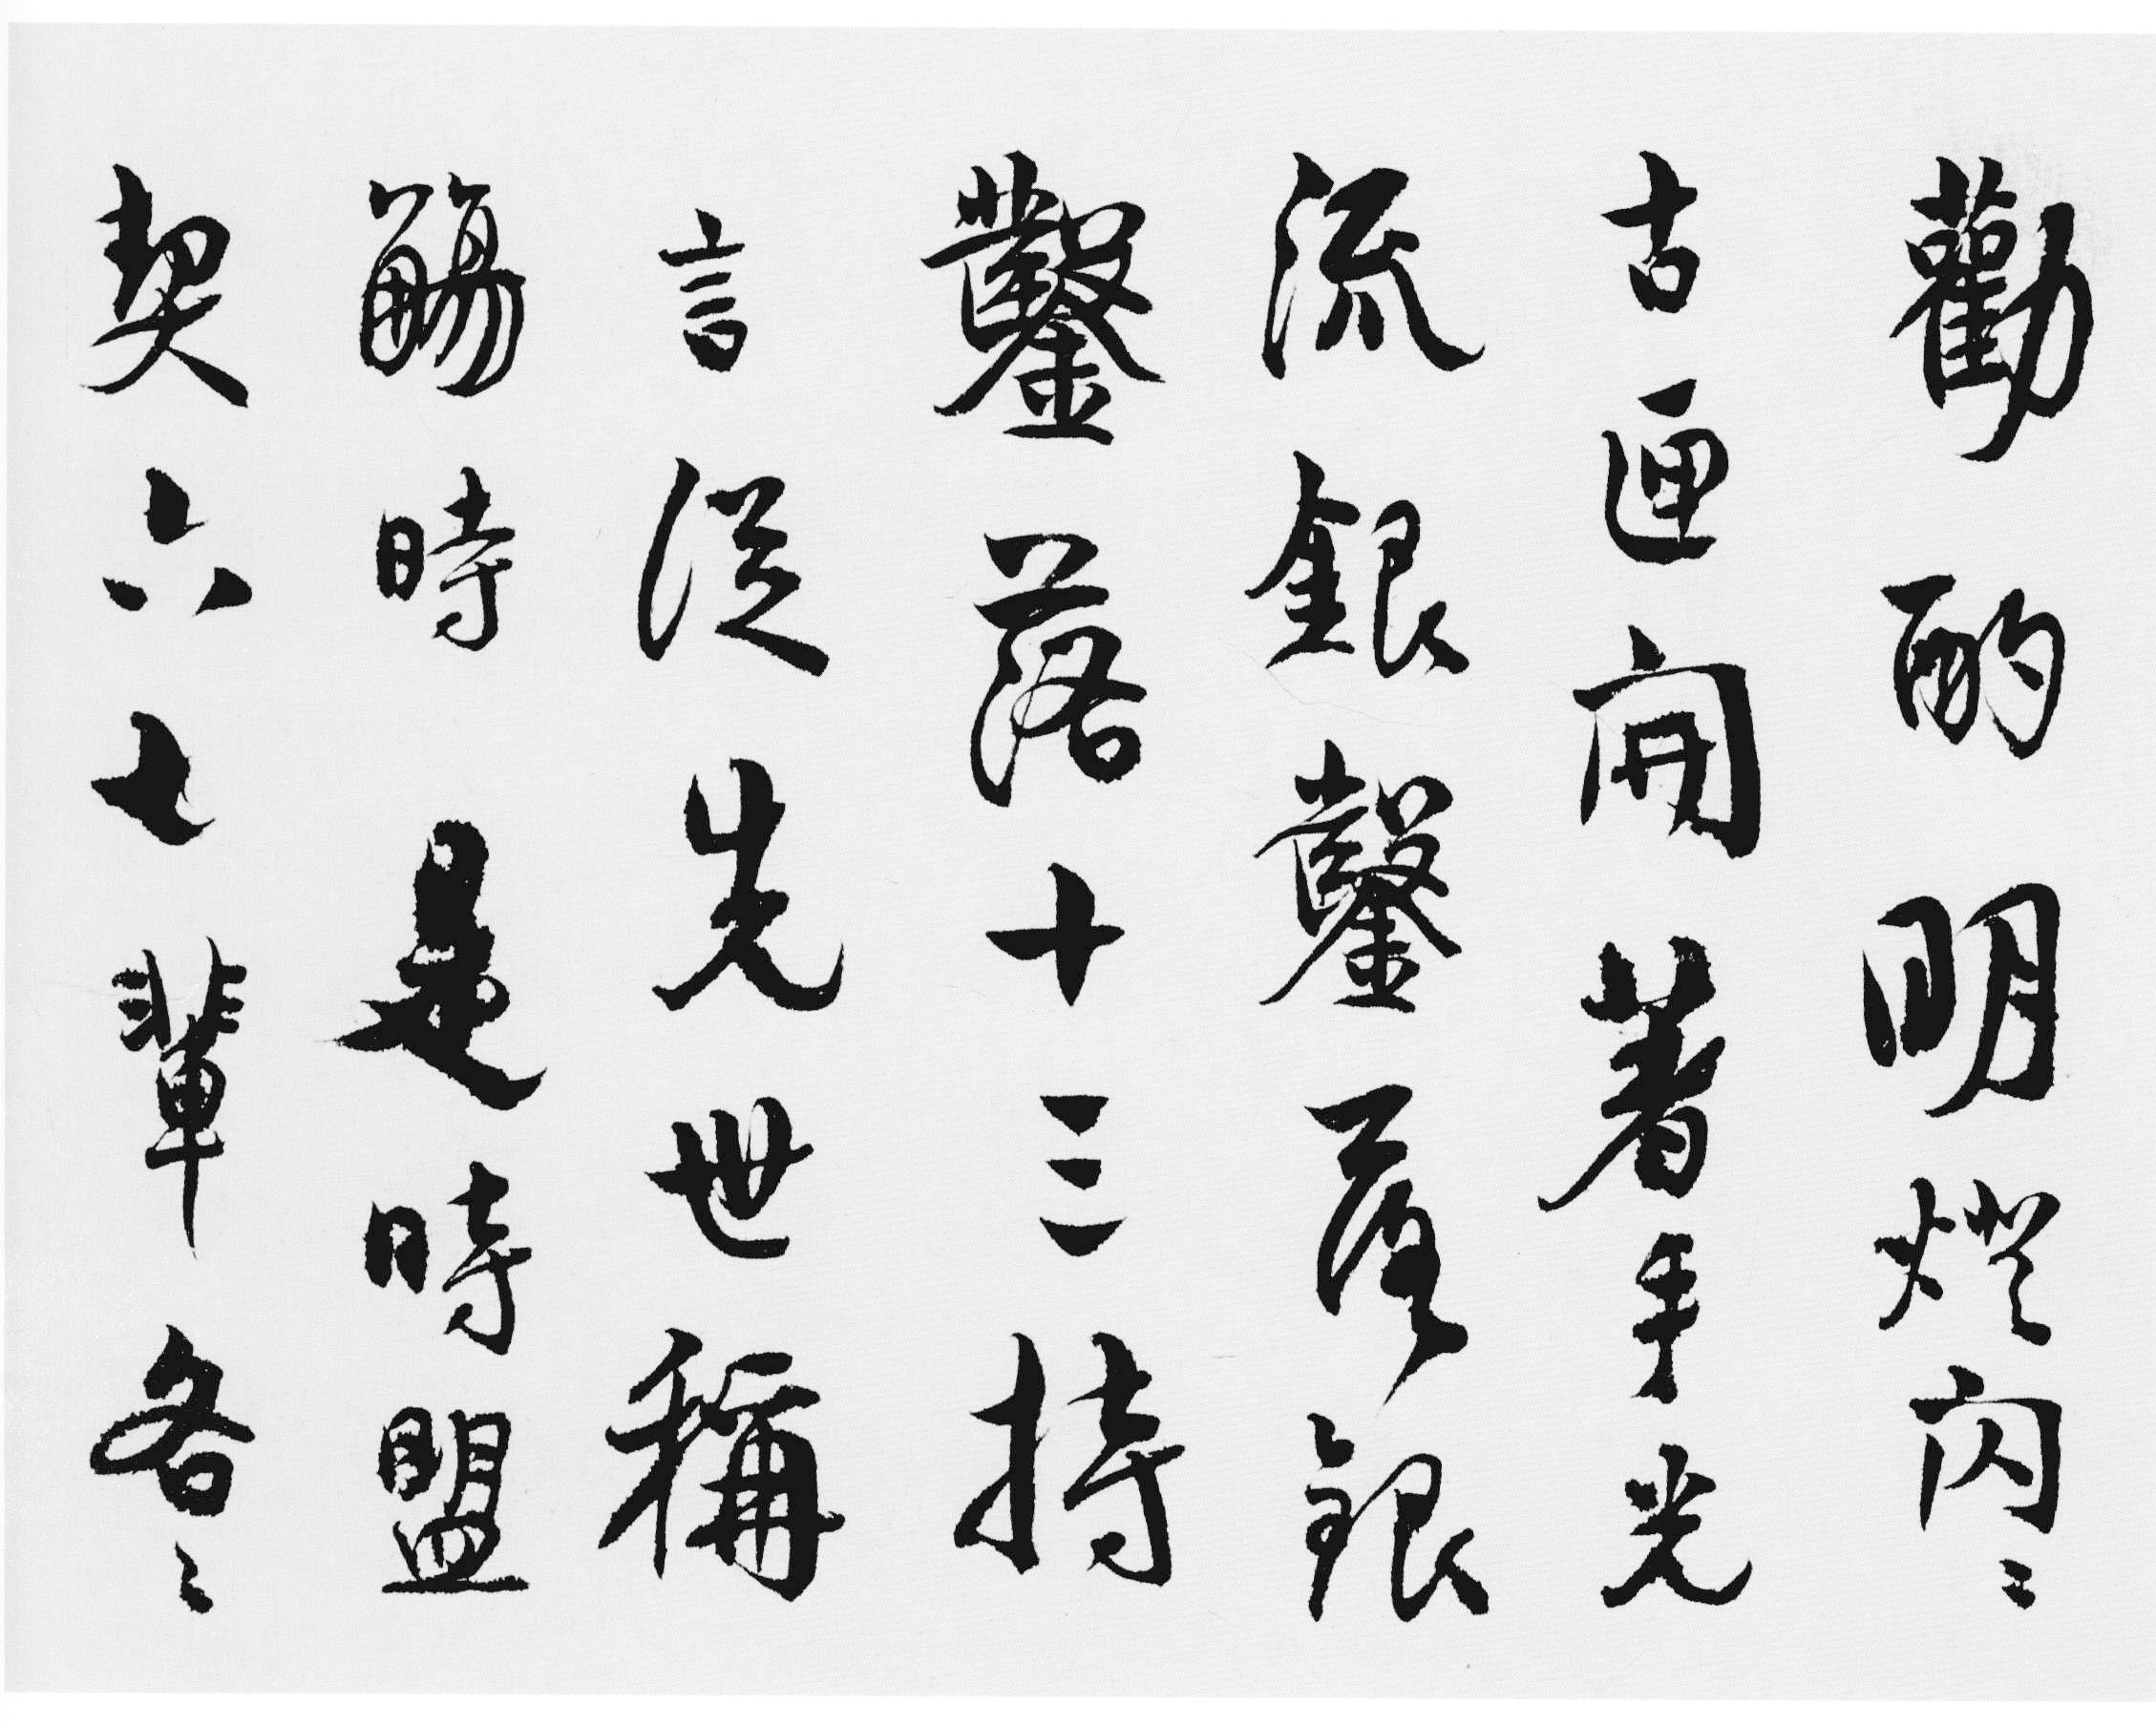 勸酌明燈閃〻
古匣開著手光
流銀鑿落銀
鑿落十三持
言從先世稱
觴時是時盟
契六七輩各〻